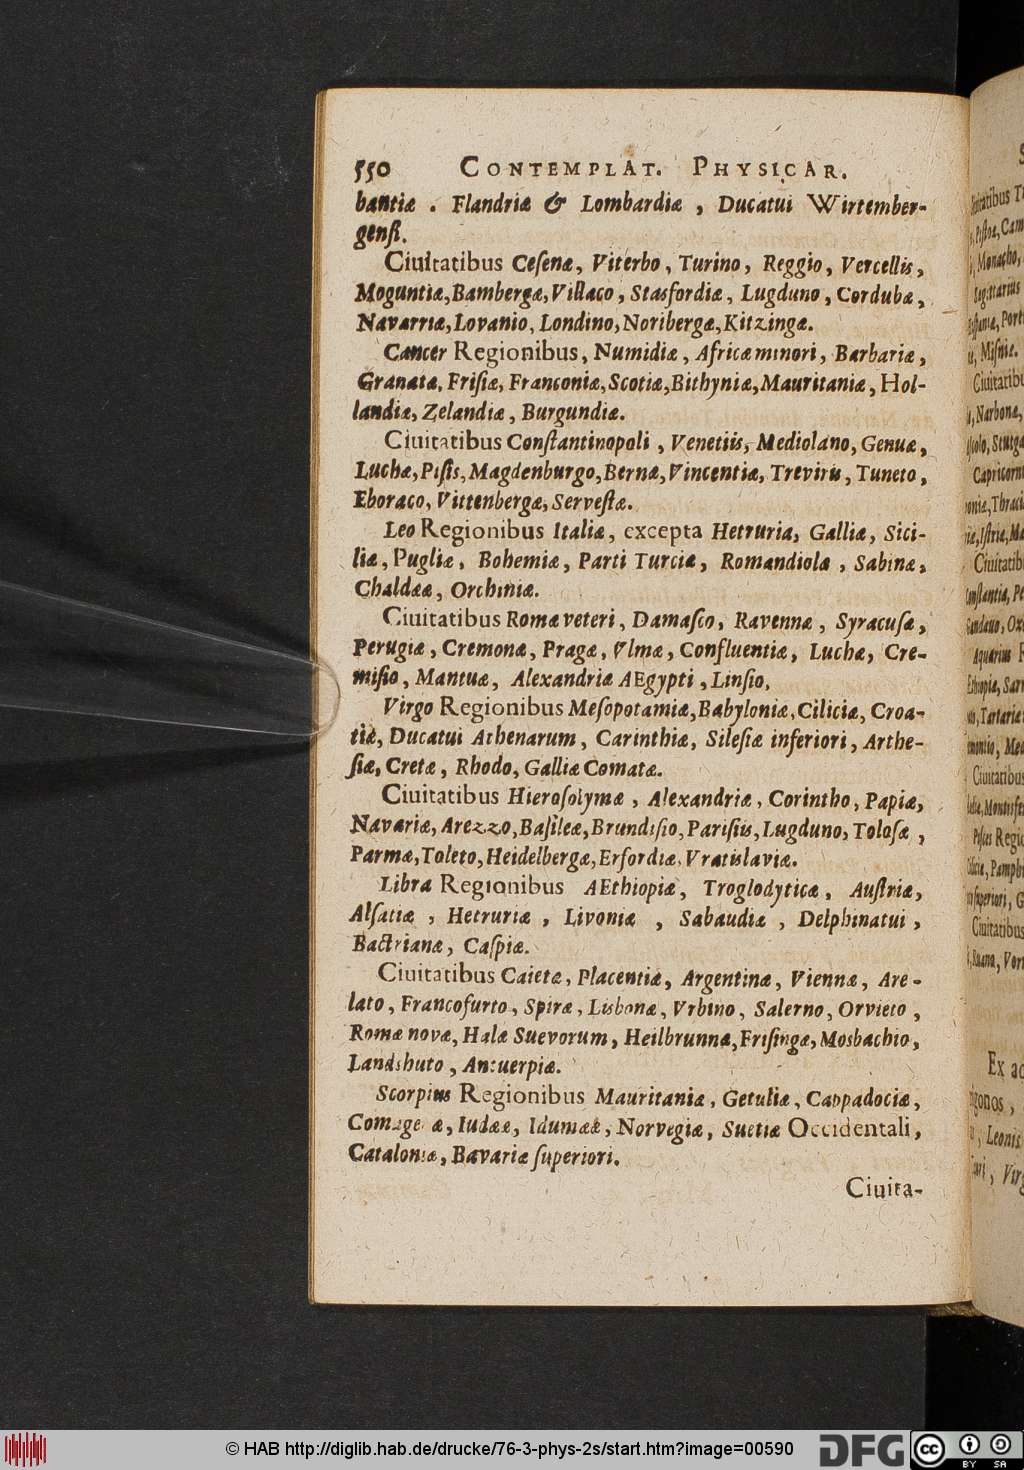 550 CONTEMPLAT. PHYSICAR.
bantiæ . Flandriæ & Lombardiæ , Ducatui Wirtember-
genſi.
Ciuitatibus Ceſenæ, Viterbo, Turino, Reggio, Vercellis,
Moguntiæ,Bambergæ,Villaco, Stasfordiæ, Lugduno, Cordubæ,
Navarriæ,Lovanio, Londino,Noribergæ,Kitzingæ.
Cancer Regionibus, Numidiæ, Africæ minori, Barbariæ,
Granatæ, Friſiæ, Franconiæ,Scotiæ,Bithyniæ,Mauritaniæ, Hol-
landiæ, Zelandiæ, Burgundiæ.
Ciuitatibus Conſtantinopoli , Venetiis, Mediolano, Genuæ,
Luchæ,Piſis,Magdenburgo,Bernæ,Vincentiæ, Treviris, Tuneto,
Eboraco, Vittenbergæ, Serveſtæ.
Leo Regionibus Italiæ, excepta Hetruria, Galliæ, Sici-
liæ, Pugliæ, Bohemiæ, Parti Turciæ, Romandiolæ , Sabinæ,
Chaldææ, Orchiniæ.
Ciuitatibus Romæ veteri, Damaſco, Ravennæ, Syracuſæ,
Perugiæ, Cremonæ, Pragæ, Vlmæ, Confluentiæ, Luchæ, Cre-
miſio, Mantuæ, Alexandriæ AEgypti , Linſio,
Virgo Regionibus Meſopotamiæ,Babyloniæ,Ciliciæ, Croa-
tiæ, Ducatui Athenarum, Carinthiæ, Sileſiæ inferiori, Arthe-
ſiæ, Cretæ, Rhodo, Galliæ Comatæ.
Ciuitatibus Hieroſolymæ , Alexandriæ, Corintho, Papiæ,
Navariæ, Arezzo,Baſileæ,Brundiſio,Pariſiis,Lugduno, Toloſæ ,
Parmæ,Toleto,Heidelbergæ,Erfordiæ,Vratislaviæ.
Libra Regionibus AEthiopiæ, Troglodyticæ, Auſtriæ,
Alſatiæ , Hetruriæ , Livoniæ , Sabaudiæ , Delphinatui ,
Bactrianæ, Caſpiæ.
Ciuitatibus Caietæ, Placentiæ, Argentinæ, Viennæ, Are-
lato, Francofurto, Spiræ, Lisbonæ, Vrbino, Salerno, Orvieto ,
Romæ novæ, Halæ Suevorum, Heilbrunnæ,Friſingæ, Mosbachio,
Landshuto , Antuerpiæ.
Scorpius Regionibus Mauritaniæ, Getuliæ, Cappadociæ,
Iudææ, Idumææ, Norvegiæ, Suetiæ Occidentali,
Cataloniæ, Bavariæ ſuperiori.
Ciuita-
Ex
© HAB http://diglib.hab.de/drucke/76-3-phys-2s/start.htm?image=00590
DFG cc BY SA